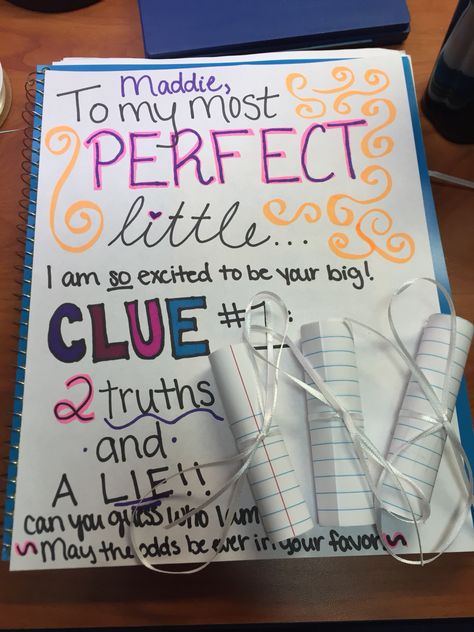 Maddie,
To my most
PERFECT
little...
I am so excited to be your big!
CLUE #1:
2 truths
·and·
A LIE!!
can you guess who I am
May the odds be ever in your favor